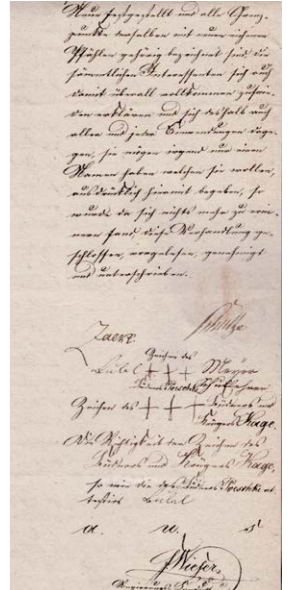 Neue festgestellt und alle Grenz-
punkte derselben mit neuen eichnen
Pfählen gehörig bezeichnet sind, die
sämmtlichen Interessenten sich auch
damit überall vollkommen zufrie-
den erklären und sich deshalb auch
aller und jeder Einwendungen dage-
gen, sie mögen irgend nur einen
Namen haben welchen sie wollen,
ausdrücklich hiermit begeben, so
wurde da sich nichts mehr zu erin-
nern fand diese Verhandlung ge-
schlossen, vorgelesen, genehmigt
und unterschrieben.
Schultze
Zaers.
Zeichen des
Lubel + + + Meyer
Büdners Poeschke
Zeichen des + + + Büdners und
Krügers Kage.
Die Richtigkeit der Zeichen des
Büdners und Krügers Kage,
so wie die des Büdners Poeschke at-
testirt Lubel
a. u. s
Wieser